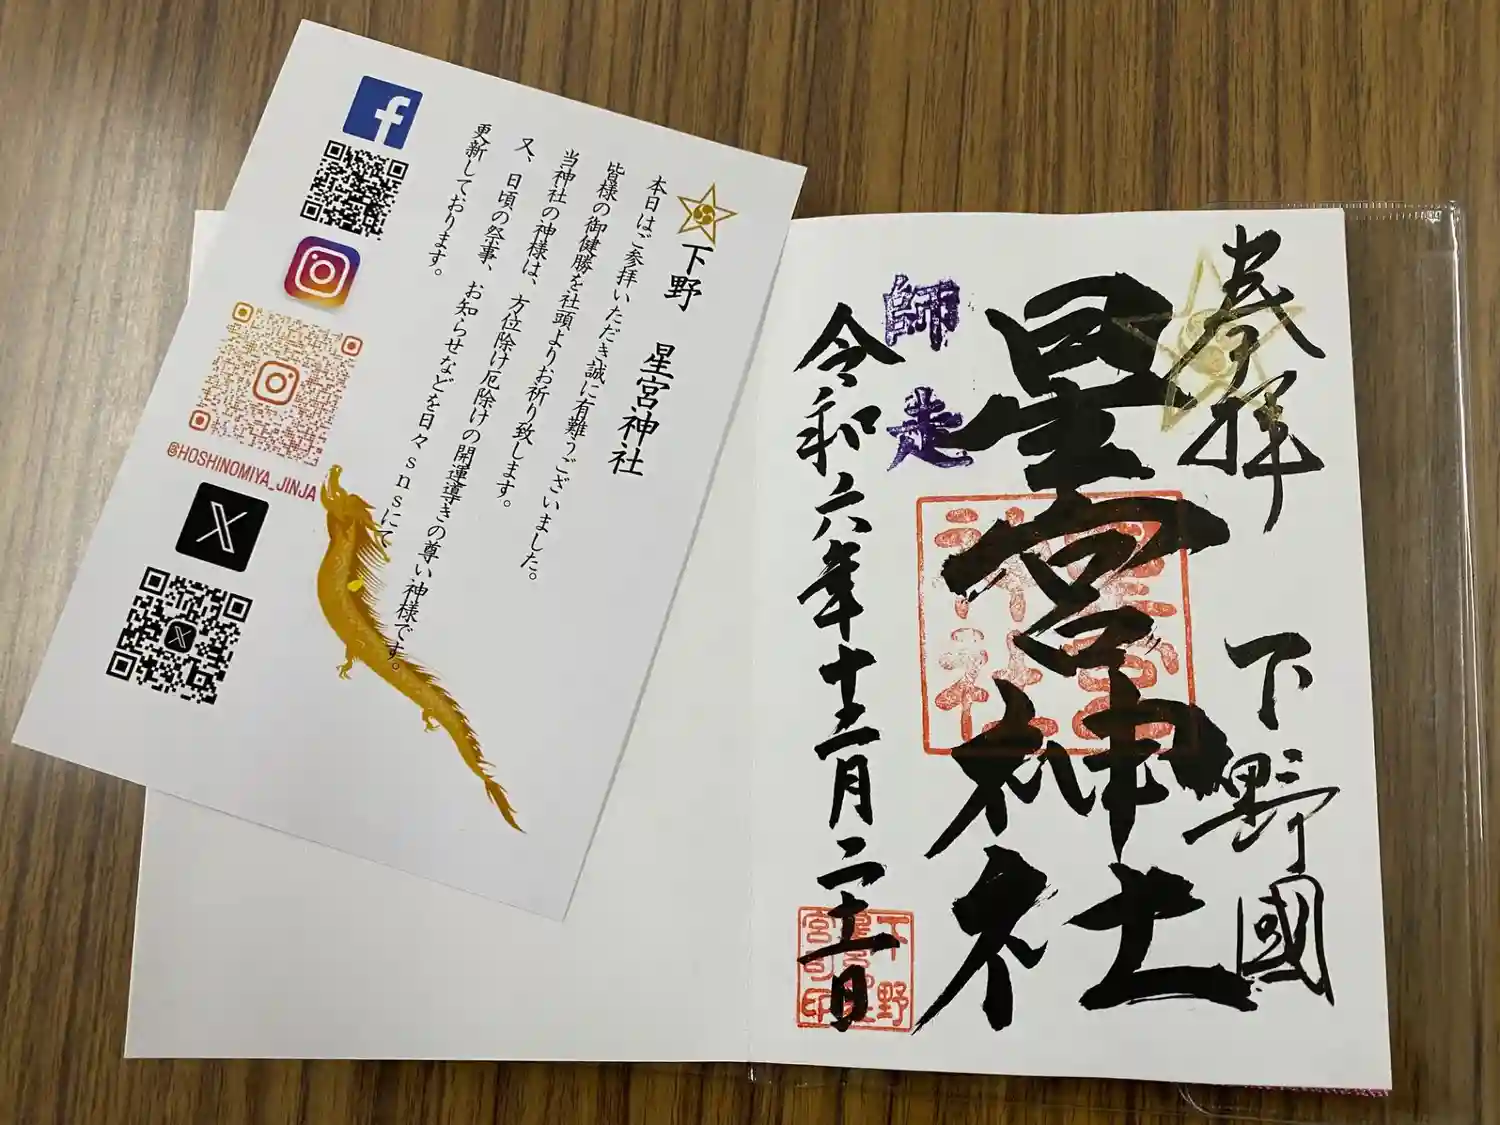 下野 星宮神社
本日はご参拝いただき誠に有難うございました。
皆様の御健勝を社頭よりお祈り致します。
当神社の神様は、方位除け厄除けの開運導きの尊い神様です。
又、日頃の祭事、お知らせなどを日々snsにて
更新しております。
@HOSHINOMIYA_JINJA
奉拝
下野國
星宮神社
師走
令和六年十二月二十一日